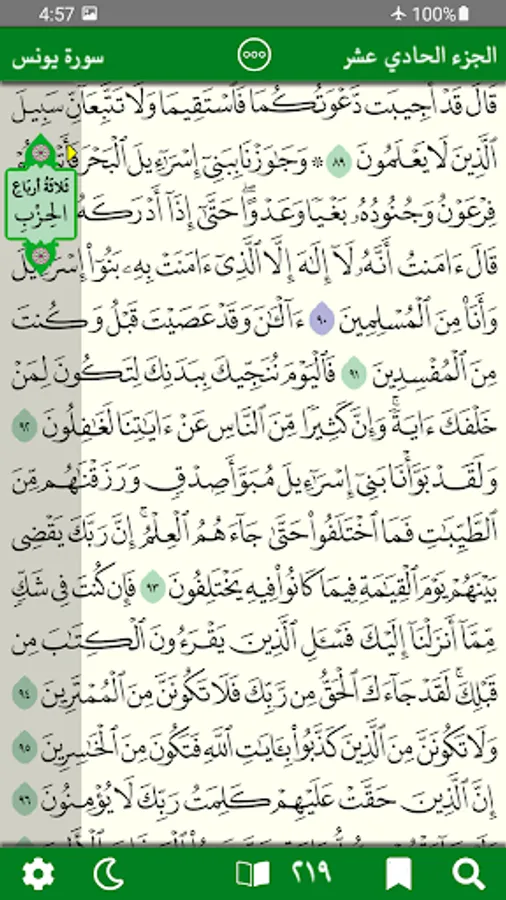 4:57 100%
الجزء الحادي عشر
سورة يونس
قَالَ قَدْ أُجِيبَت دَّعْوَتُكُمَا فَٱسْتَقِيمَا وَلَا تَتَّبِعَآنِّ سَبِيلَ
ٱلَّذِينَ لَا يَعْلَمُونَ ٨٩ ۞ وَجَٰوَزْنَا بِبَنِىٓ إِسْرَٰٓءِيلَ ٱلْبَحْرَ
ثلاثة أرباع
الحزب
فِرْعَوْنُ وَجُنُودُهُۥ بَغْيًا وَعَدْوًا ۖ حَتَّىٰٓ إِذَآ أَدْرَكَهُ
قَالَ ءَامَنتُ أَنَّهُۥ لَآ إِلَٰهَ إِلَّا ٱلَّذِىٓ ءَامَنَتْ بِهِۦ بَنُوٓا۟ إِسْرَٰٓءِيلَ
وَأَنَا۠ مِنَ ٱلْمُسْلِمِينَ ٩٠ ءَآلْـَٰٔنَ وَقَدْ عَصَيْتَ قَبْلُ وَكُنتَ
مِنَ ٱلْمُفْسِدِينَ ٩١ فَٱلْيَوْمَ نُنَجِّيكَ بِبَدَنِكَ لِتَكُونَ لِمَنْ
خَلْفَكَ ءَايَةً ۚ وَإِنَّ كَثِيرًا مِّنَ ٱلنَّاسِ عَنْ ءَايَٰتِنَا لَغَٰفِلُونَ ٩٢
وَلَقَدْ بَوَّأْنَا بَنِىٓ إِسْرَٰٓءِيلَ مُبَوَّأَ صِدْقٍ وَرَزَقْنَٰهُم مِّنَ
ٱلطَّيِّبَٰتِ فَمَا ٱخْتَلَفُوا۟ حَتَّىٰ جَآءَهُمُ ٱلْعِلْمُ ۚ إِنَّ رَبَّكَ يَقْضِى
بَيْنَهُمْ يَوْمَ ٱلْقِيَٰمَةِ فِيمَا كَانُوا۟ فِيهِ يَخْتَلِفُونَ ٩٣ فَإِن كُنتَ فِى شَكٍّ
مِّمَّآ أَنزَلْنَآ إِلَيْكَ فَسْـَٔلِ ٱلَّذِينَ يَقْرَءُونَ ٱلْكِتَٰبَ مِن
قَبْلِكَ ۚ لَقَدْ جَآءَكَ ٱلْحَقُّ مِن رَّبِّكَ فَلَا تَكُونَنَّ مِنَ ٱلْمُمْتَرِينَ ٩٤
وَلَا تَكُونَنَّ مِنَ ٱلَّذِينَ كَذَّبُوا۟ بِـَٔايَٰتِ ٱللَّهِ فَتَكُونَ مِنَ ٱلْخَٰسِرِينَ ٩٥
إِنَّ ٱلَّذِينَ حَقَّتْ عَلَيْهِمْ كَلِمَتُ رَبِّكَ لَا يُؤْمِنُونَ ٩٦
٢١٩